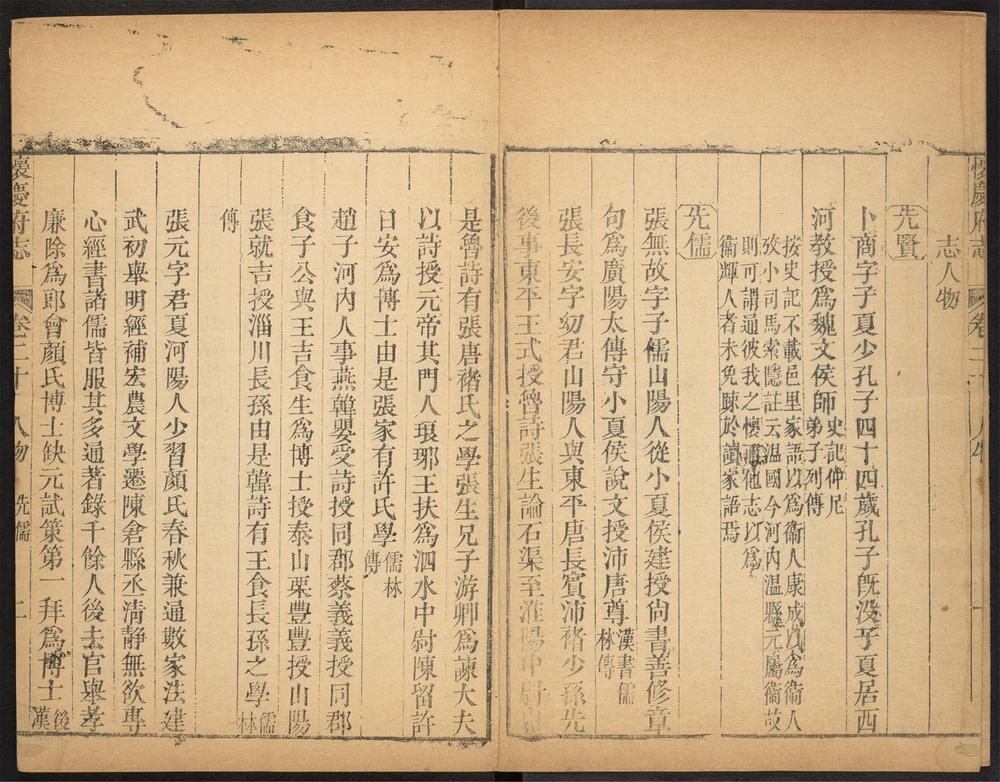 懷慶府志 卷二十 人物
志人物
先賢
卜商字子夏少孔子四十四歲孔子旣没子夏居西
河教授爲魏文侯師史記仲尼
弟子列傳
按史記不載邑里家語以爲衞人康成以爲衞人
攷小司馬索隱註云温國今河內温縣元屬衞故
則可謂通彼我之懷他志以爲
衞輝人者未免踈於讀家語焉
先儒
張無故字子儒山陽人從小夏侯建授尙書善修章
句爲廣陽太傅守小夏侯說文授沛唐尊漢書儒
林傳
張長安字幼君山陽人與東平唐長賓沛褚少孫先
後事東平王式授魯詩張生論石渠至淮陽中尉由
是魯詩有張唐褚氏之學張生兄子游卿爲諫大夫
以詩授元帝其門人琅琊王扶爲泗水中尉陳留許
晏爲博士由是張家有許氏學儒林
傳
趙子河內人事燕韓嬰受詩授同郡蔡義義授同郡
食子公與王吉食生爲博士授泰山栗豐豐授山陽
張就吉授淄川長孫由是韓詩有王食長孫之學儒
林
傳
張元字君夏河陽人少習顏氏春秋兼通數家法建
武初舉明經補宏農文學遷陳倉縣丞淸靜無欲專
心經書諸儒皆服其多通著錄千餘人後去官舉孝
廉除爲郎會顏氏博士缺元試策第一拜爲博士後
漢
懷慶府志 卷二十 人物 先儒 二